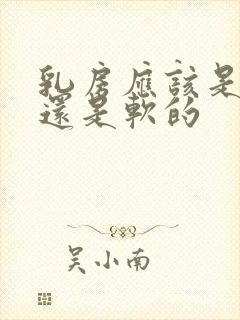 乳房應該是
還是軟的
吴小南